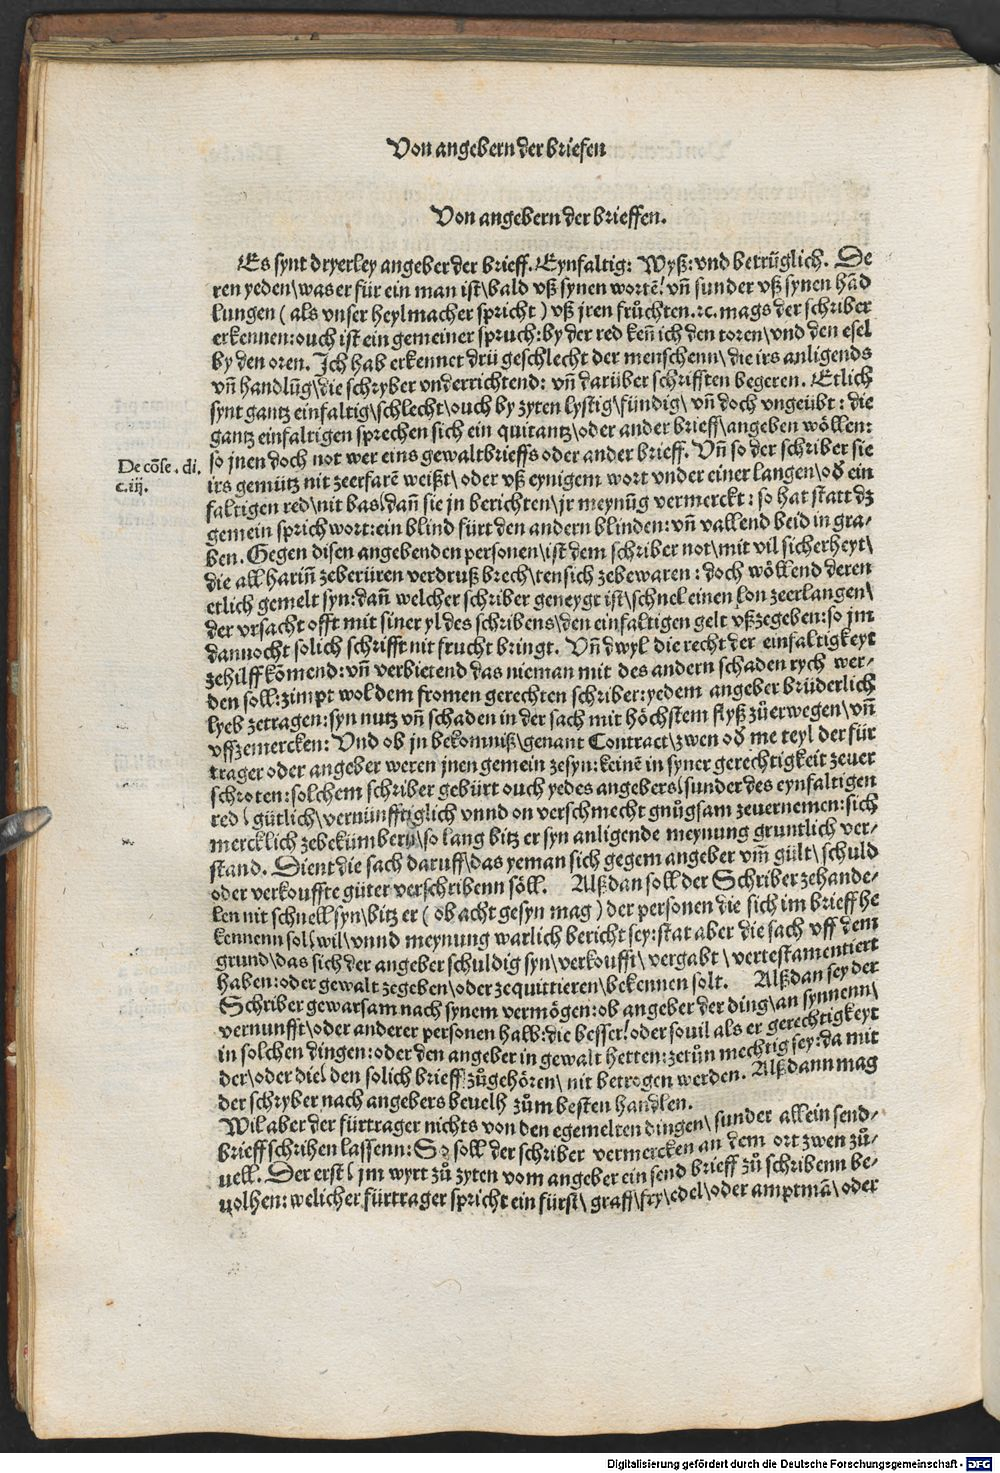 Von angebern der briefen
Von angebern der brieffen.
Es synt dryerley angeber der brieff. Eynfaltig: Wyß: vnd betrüglich. De
ren yeden\ was er für ein man ist\ bald vß synen wortē! vn̄ sunder vß synen hād
lungen ( als vnser heylmacher spricht ) vß jren früchten.⁊c. mags der schriber
erkennen: ouch ist ein gemeiner spruch: by der red ken̄ ich den toren\ vnd den esel
by den oren. Ich hab erkennet drü geschlecht der menschenn\ die irs anligends
vn̄ handlūg\ die schryber vnderrichtend: vn̄ darüber schrifften begeren. Etlich
synt gantz einfaltig\ schlecht\ ouch by zyten lystig\ fündig\ vn̄ doch vngeübt: die
gantz einfaltigen sprechen sich ein quitantz\ oder ander brieff\ angeben wöllen:
so jnen doch not wer eins gewaltbrieffs oder ander brieff. Vn̄ so der schriber sie
De cōse. di.
c. iij.
irs gemütz nit zeerfarē weißt\ oder vß eynigem wort vnder einer langen\ od̄ ein
faltigen red\ nit bas\ dan̄ sie jn berichten\ jr meynūg vermerckt: so hat statt dz
gemein sprichwort: ein blind fürt den andern blinden: vn̄ vallend beid in gra⸗
ben. Gegen disen angebenden personen\ ist dem schriber not\ mit vil sicherheyt\
die all harin̄ zeberüren verdruß brech\ ten sich zebewaren: doch wöllend deren
etlich gemelt syn: dan̄ welcher schriber geneygt ist\ schnel einen lon zeerlangen\
der vrsacht offt mit siner yl des schribens\ den einfaltigen gelt vßzegeben: so jm
dannocht solich schrifft nit frucht bringt. Vn̄ dwyl die recht der einfaltigkeyt
zehilff kōmend: vn̄ verbietend das nieman mit des andern schaden rych wer⸗
den soll: zimpt wol dem fromen gerechten schriber: yedem angeber brüderlich
lyeb zetragen: syn nutz vn̄ schaden in der sach mit höchstem flyß zů erwegen\ vn̄
vffzemercken: Vnd ob jn bekomniß\ genant Contract\ zwen od̄ me teyl der für
trager oder angeber weren jnen gemein zesyn: keinē in syner gerechtigkeit zeuer
schroten: solchem schriber gebürt ouch yedes angebers\ sunder des eynfaltigen
red\ gütlich\ vernünfftiglich vnnd on verschmecht gnůgsam zeuernemen: sich
mercklich zebekümbern\ so lang bitz er syn anligende meynung gruntlich ver⸗
stand. Dient die sach daruff\ das yeman sich gegem angeber vm̄ gült\ schuld
oder verkouffte güter verschribenn söll. Alß dan soll der Schriber zehande⸗
len nit schnell syn\ bitz er ( ob acht gesyn mag ) der personen die sich im brieff be
kennenn sol\ wil\ vnnd meynung warlich bericht sey: stat aber die sach vff dem
grund\ das sich der angeber schuldig syn\ verkoufft\ vergabt\ vertestamentiert
haben: oder gewalt zegeben\ oder zequittieren\ bekennen solt. Alß dan sey der
Schriber gewarsam nach synem vermögen: ob angeber der ding\ an synnenn\
vernunfft\ oder anderer personen halb: die besser! oder souil als er gerechtigkeyt
in solchen dingen: oder den angeber in gewalt hetten: zetůn mechtig sey: da mit
der\ oder die\ den solich brieff zůgehören\ nit betrogen werden. Alß dann mag
der schryber nach angebers beuelh zům besten handlen.
Wil aber der fürtrager nichts von den egemelten dingen\ sunder allein send⸗
brieff schriben lassenn: So soll der schriber vermercken an dem ort zwen zů⸗
uell. Der erst\ jm wyrt zů zyten vom angeber ein send brieff zů schribenn be⸗
uolhen: welicher fürtrager spricht ein fürst\ graff\ fry\ edel\ oder amptmā\ oder
Digitalisierung gefördert durch die Deutsche Forschungsgemeinschaft - DFG